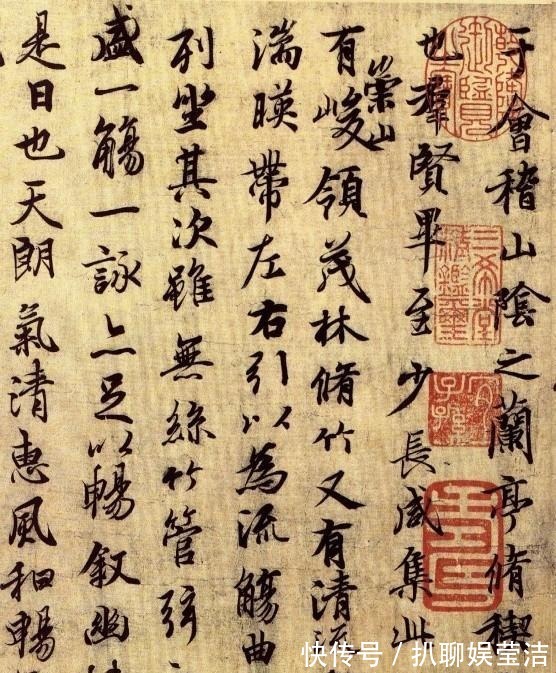 于會稽山陰之蘭亭脩禊
也羣賢畢至少長咸集此
有崇山峻領茂林脩竹又有清流
湍暎帶左右引以為流觴曲
列坐其次雖無絲竹管弦
盛一觴一詠亦足以暢敘幽情
是日也天朗氣清惠風和暢
三希堂精鑑璽
宜子孫
快传号 / 扒聊娱莹洁